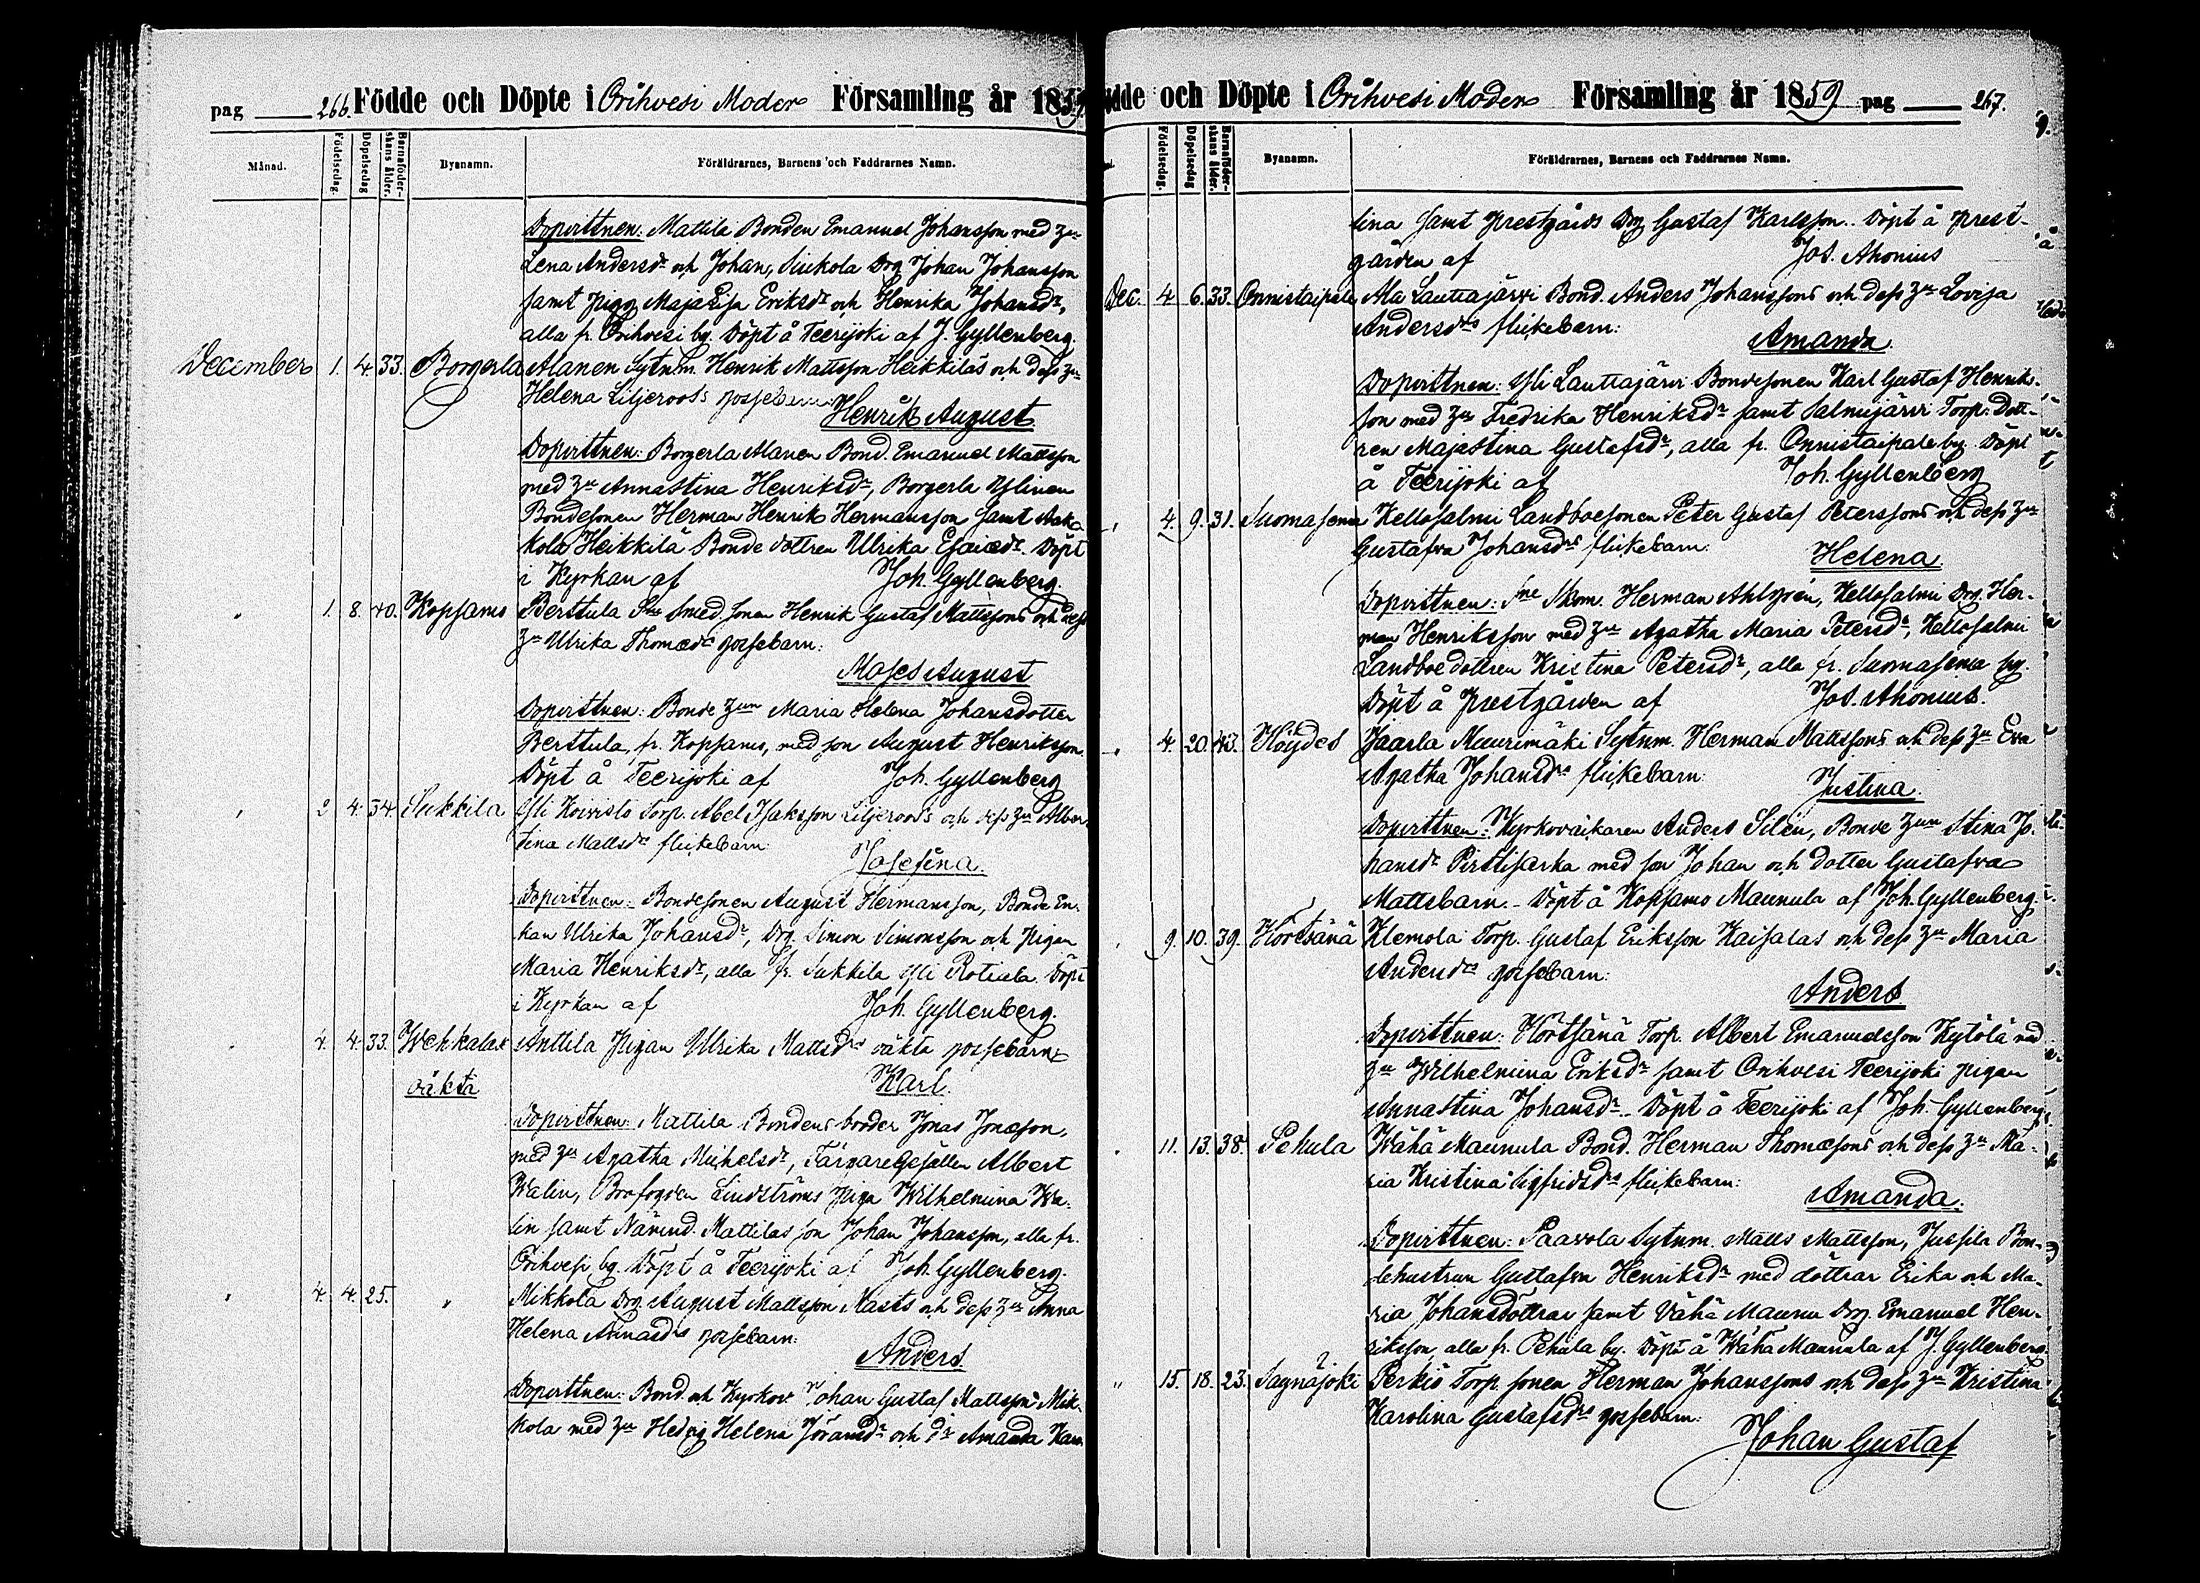 pag 266. Födde och Döpte i Orihvesi Moder Församling år 1859
Månad. Födelsedag. Döpelsedag Barnaföderskans ålder. Byanamn. Föräldrarnes, Barnens och Faddrarnes Namn.
Dopvittnen: Mattila Bonden Emanuel Johansson med
Lena Andersdr och Johan, Siukola Drg Johan Johansson
samt Pigg Maja Lisa Eriksdr och Henrika Johansdr,
alla fr. Orihvesi by. Döpt å Teerijoki af J. Gyllenberg.
December 1. 4. 33. Borgerla Alanen Sytnm. Henrik Mattsson Heikkilas och dess
Helena Liljeroos gossebarn:
Henrik August
Dopvittnen: Borgerla Alanen Bond. Emanuel Mattsson
med Annastina Henriksdr, Borgerla Ylinen
Bondesonen Herman Henrik Hermansson samt
kola Heikkilä Bonde dottren Ulrika Esaiædr. Döpt
i Kyrkan af Joh. Gyllenberg.
" 1. 8. 40. Kopsamo Berttula Smed sonen Henrik Gustaf Mattssons och dess
Ulrika Thomædr gossebarn:
Moses August
Dopvittnen: Bonde Maria Helena Johansdotter
Berttula, fr. Kopsamo, med son August Henriksson.
Döpt å Teerijoki af Joh. Gyllenberg
" 2 4. 34. Sukkila Yli Koivisto Torp. Abel Isaksson Liljeroos och dess Alber
tina Mattsdr flickebarn:
Josefina.
Dopvittnen: Bondesonen August Hermansson, Bonde En-
kan Ulrika Johansdr, Drg. Simon Simonsson och Pigan
Maria Henriksdr, alla fr. Sukkila Yli Rotiala. Döpt
i Kyrkan af Joh. Gyllenberg.
4. 4. 33. Wehkalax Anttila Pigan Ulrika Mattsdrs oäkta gossebarn:
oäkta Karl.
Dopvittnen: Mattila Bondens broder Jonas Jonæson,
med Agatha Michelsdr, Färgare Gesällen Albert
Walin, Brofogden Lindströms Piga Wilhelmina Wa-
lin samt Nämnd. Mattilas son Johan Johansson, alla fr.
Orihvesi by. Döpt å Teerijoki af Joh. Gyllenberg.
" 4. 4. 25. " Mikkola Drg. August Mattsson Nasts och dess Anna
Helena Annasdrs gossebarn:
Anders
Dopvittnen: Bond. och Kyrkov. Johan Gustaf Mattsson Mik-
kola med Hedvig Helena Jöransdr och dr Amanda Karo
Födde och Döpte i Orihvesi Moder Församling år 1859 pag 267.
Födelsedag. Döpelsedag Barnaföderskans ålder. Byanamn. Föräldrarnes, Barnens och Faddrarnes Namn.
lina samt Prestgårds Drg Gustaf Karlsson. Döpt å Prest-
gården af Jos. Ahonius
Dec. 4. 6. 33. Onnistaipale Ala Lauttajärvi Bond. Anders Johanssons och dess Lovisa
Andersdrs flickebarn:
Amanda.
Dopvittnen: Yli Lauttajärvi Bondesonen Karl Gustaf Henriks-
son med Fredrika Henriksdr samt Salmijärvi Torp. Dott-
ren Majastina Gustafsdr, alla fr. Onnistaipale by. Döpt
å Teerijoki af Joh. Gyllenberg
4. 9. 31. Suomasema Kellosalmi Landboesonen Peter Gustaf Peterssons och dess
Gustafva Johansdrs flickebarn:
Helena.
Dopvittnen: Skom. Herman Ahlgrén, Kellosalmi Drg. Her-
man Henriksson med Agatha Maria Petersdr, Kellosalmi
Landboe dottren Kristina Petersdr, alla fr. Suomasema by.
Döpt å Prestgården af Jos. Ahonius.
" 4. 20. 43. Höydes Jaarla Maurimäki Sytnm. Herman Mattssons och dess Eva
Agatha Johansdrs flickebarn:
Justina.
Dopvittnen: Kyrkoväktaren Anders Silén, Bonde Stina Jo-
hansdr Pirttisarka med son Johan och dotter Gustafva
Mattsbarn. Döpt å Kopsamo Maunula af Joh. Gyllenberg.
9. 10. 39. Hörtsänä Klemola Torp. Gustaf Eriksson Kaisalas och dess Maria
Andersdrs gossebarn:
Anders
Dopvittnen: Hörtsänä Torp. Albert Emanuelsson Kytölä med
Wilhelmina Eriksdr samt Orihvesi Teerijoki Pigan
Annastina Johansdr. Döpt å Teerijoki af Joh. Gyllenberg.
11. 13. 38. Pehula Wähä Maunula Bond. Herman Thomæsons och dess Ma-
ria Kristina Sigfridsdrs flickebarn:
Amanda.
Dopvittnen: Paavola Sytnm. Matts Mattsson, Jussila Bon-
dehustrun Gustafva Henriksdr med döttrar Erika och Ma-
ria Johansdöttrar samt Vähä Maunu Drg. Emanuel Hen-
riksson, alla fr. Pehula by. Döpt å Wähä Maunula af J. Gyllenberg.
" 15. 18. 23. Sagnäjoki Perkiö Torp. sonen Herman Johanssons och dess Kristina
Karolina Gustafsdrs gossebarn:
Johan Gustaf